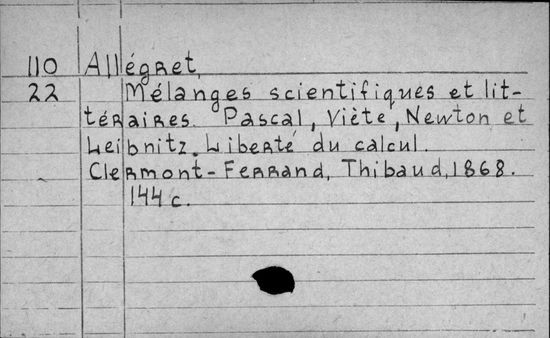 110 Allégret,
22 Mélanges scientifiques et lit-
téraires. Pascal, Viète, Newton et
Leibnitz. Liberté du calcul.
Clermont-Ferrand, Thibaud, 1868.
144 c.